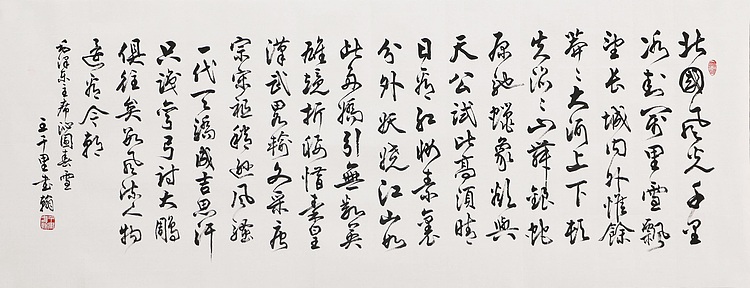 北國風光千里
冰封萬里雪飄
望長城內外惟餘
莽〻大河上下頓
失滔〻山舞銀蛇
原馳蠟象欲與
天公試比高須晴
日看紅妝素裹
分外妖嬈江山如
此多嬌引無數英
雄競折腰惜秦皇
漢武略輸文采唐
宗宋祖稍遜風騷
一代天驕成吉思汗
只識彎弓射大鵰
俱往矣數風流人物
還看今朝
毛澤東主席沁園春雪
王千里書